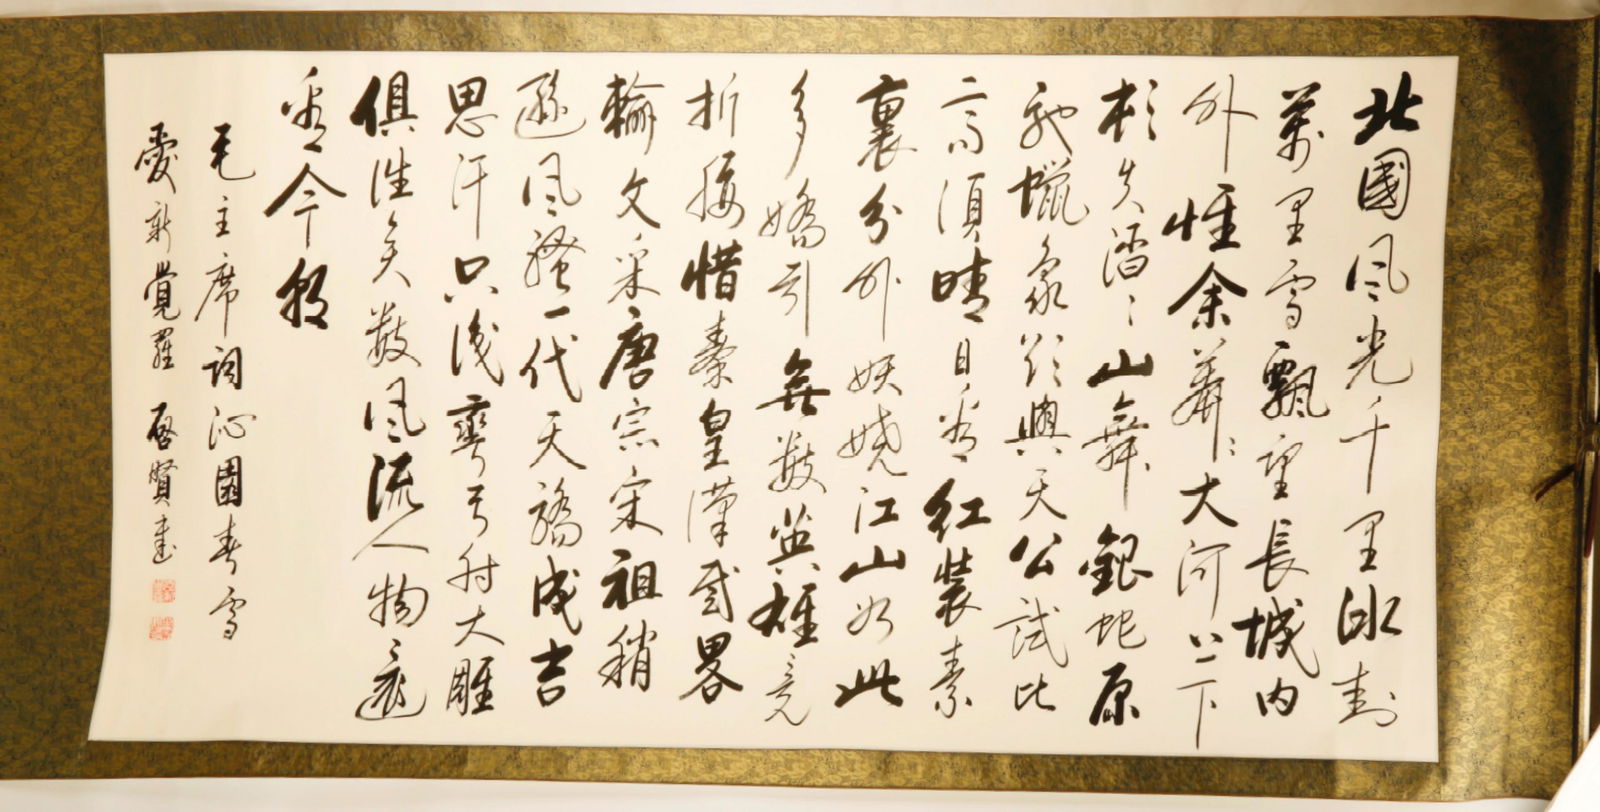 北國風光千里冰封
萬里雪飄望長城內
外惟余莽〻大河上下
頓失滔〻山舞銀蛇原
馳蠟象欲與天公試比
高須晴日看紅裝素
裹分外妖嬈江山如此
多嬌引無數英雄竟
折腰惜秦皇漢武畧
輸文采唐宗宋祖稍
遜風騷一代天驕成吉
思汗只識彎弓射大雕
俱往矣數風流人物還
看今朝
毛主席詞沁園春雪
愛新覺羅 啓賢書